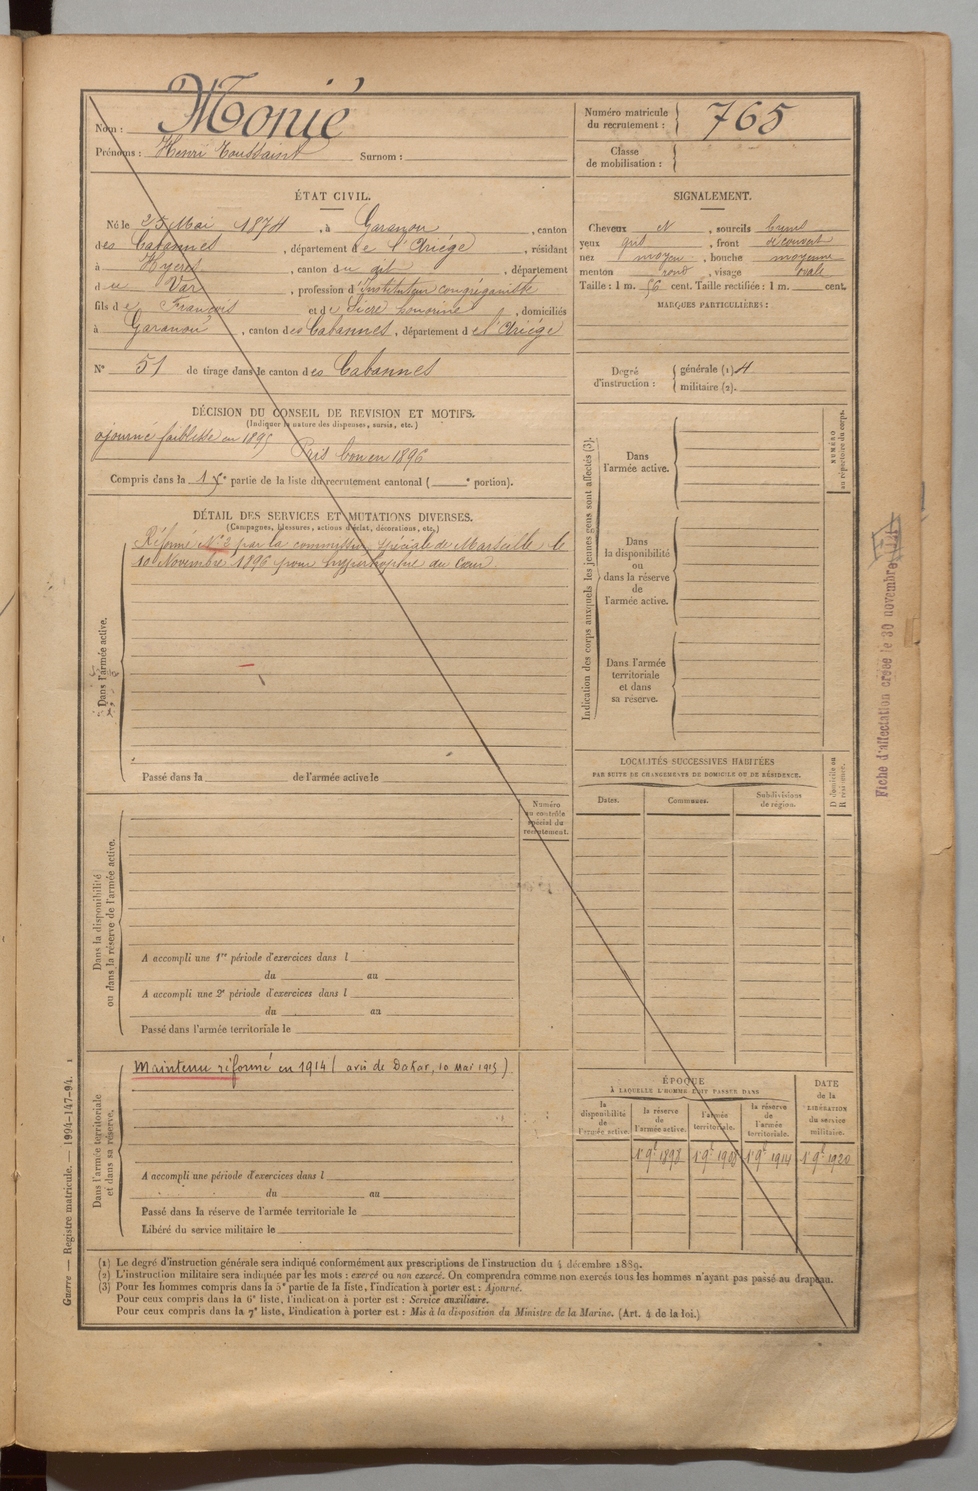 Nom : Monié
Prénoms : Henri Toussaint Surnom :
Numéro matricule
du recrutement : 765
Classe
de mobilisation :
ÉTAT CIVIL.
Né le 25 Mai 1874, à Garanou, canton
des Cabannes, département de l'Ariége, résidant
à Hyeres, canton du dit, département
du Var, profession d'instituteur congréganiste
fils de François et de Sicre honorine, domiciliés
à Garanou, canton des Cabannes, département de l'Ariége
N° 51 de tirage dans le canton des Cabannes
SIGNALEMENT.
Cheveux N, sourcils bruns
yeux gris, front découvert
nez moyen, bouche moyenne
menton rond, visage ovale
Taille : 1 m. 56 cent. Taille rectifiée : 1 m. cent.
MARQUES PARTICULIÈRES :
Degré
d'instruction :
générale (1) 4
militaire (2).
DÉCISION DU CONSEIL DE REVISION ET MOTIFS.
(Indiquer la nature des dispenses, sursis, etc.)
ajourné faiblesse en 1895
Pris bon en 1896
Compris dans la 1e partie de la liste du recrutement cantonal ( e portion).
DÉTAIL DES SERVICES ET MUTATIONS DIVERSES.
(Campagnes, blessures, actions d'éclat, décorations, etc.)
Réformé N° 2 par la commission spéciale de Marseille le
10 Novembre 1896 pour hypertrophie du Cœur.
Dans l'armée active.
Passé dans la de l'armée active le
Indication des corps auxquels les jeunes gens sont affectés (3).
Dans
l'armée active.
Dans
la disponibilité
ou
dans la réserve
de
l'armée active.
Dans l'armée
territoriale
et dans
sa réserve.
NUMÉRO
au répertoire du corps.
LOCALITÉS SUCCESSIVES HABITÉES
PAR SUITE DE CHANGEMENTS DE DOMICILE OU DE RÉSIDENCE.
Dates.
Communes.
Subdivisions
de région.
D domicile ou
R résidence.
Numéro
au contrôle
spécial du
recrutement.
Dans la disponibilité
ou dans la réserve de l'armée active.
A accompli une 1re période d'exercices dans l
du au
A accompli une 2e période d'exercices dans l
du au
Passé dans l'armée territoriale le
Dans l'armée territoriale
et dans sa réserve.
Maintenu réformé en 1914 ( avis de Dakar, 10 Mai 1915 )
A accompli une période d'exercices dans l
du au
Passé dans la réserve de l'armée territoriale le
Libéré du service militaire le
ÉPOQUE
À LAQUELLE L'HOMME DOIT PASSER DANS
la
disponibilité
de
l'armée active.
la réserve
de
l'armée active.
l'armée
territoriale.
la réserve
de
l'armée
territoriale.
DATE
de la
LIBÉRATION
du service
militaire.
1 9e 1898
1 9e 1908
1 9e 1914
1 9e 1920
(1) Le degré d'instruction générale sera indiqué conformément aux prescriptions de l'instruction du 4 décembre 1889.
(2) L'instruction militaire sera indiquée par les mots : exercé ou non exercé. On comprendra comme non exercés tous les hommes n'ayant pas passé au drapeau.
(3) Pour les hommes compris dans la 5e partie de la liste, l'indication à porter est : Ajourné.
Pour ceux compris dans la 6e liste, l'indication à porter est : Service auxiliaire.
Pour ceux compris dans la 7e liste, l'indication à porter est : Mis à la disposition du Ministre de la Marine. (Art. 4 de la loi.)
Guerre — Registre matricule. — 1994-147-94. 1
Fiche d'affectation créée le 30 novembre